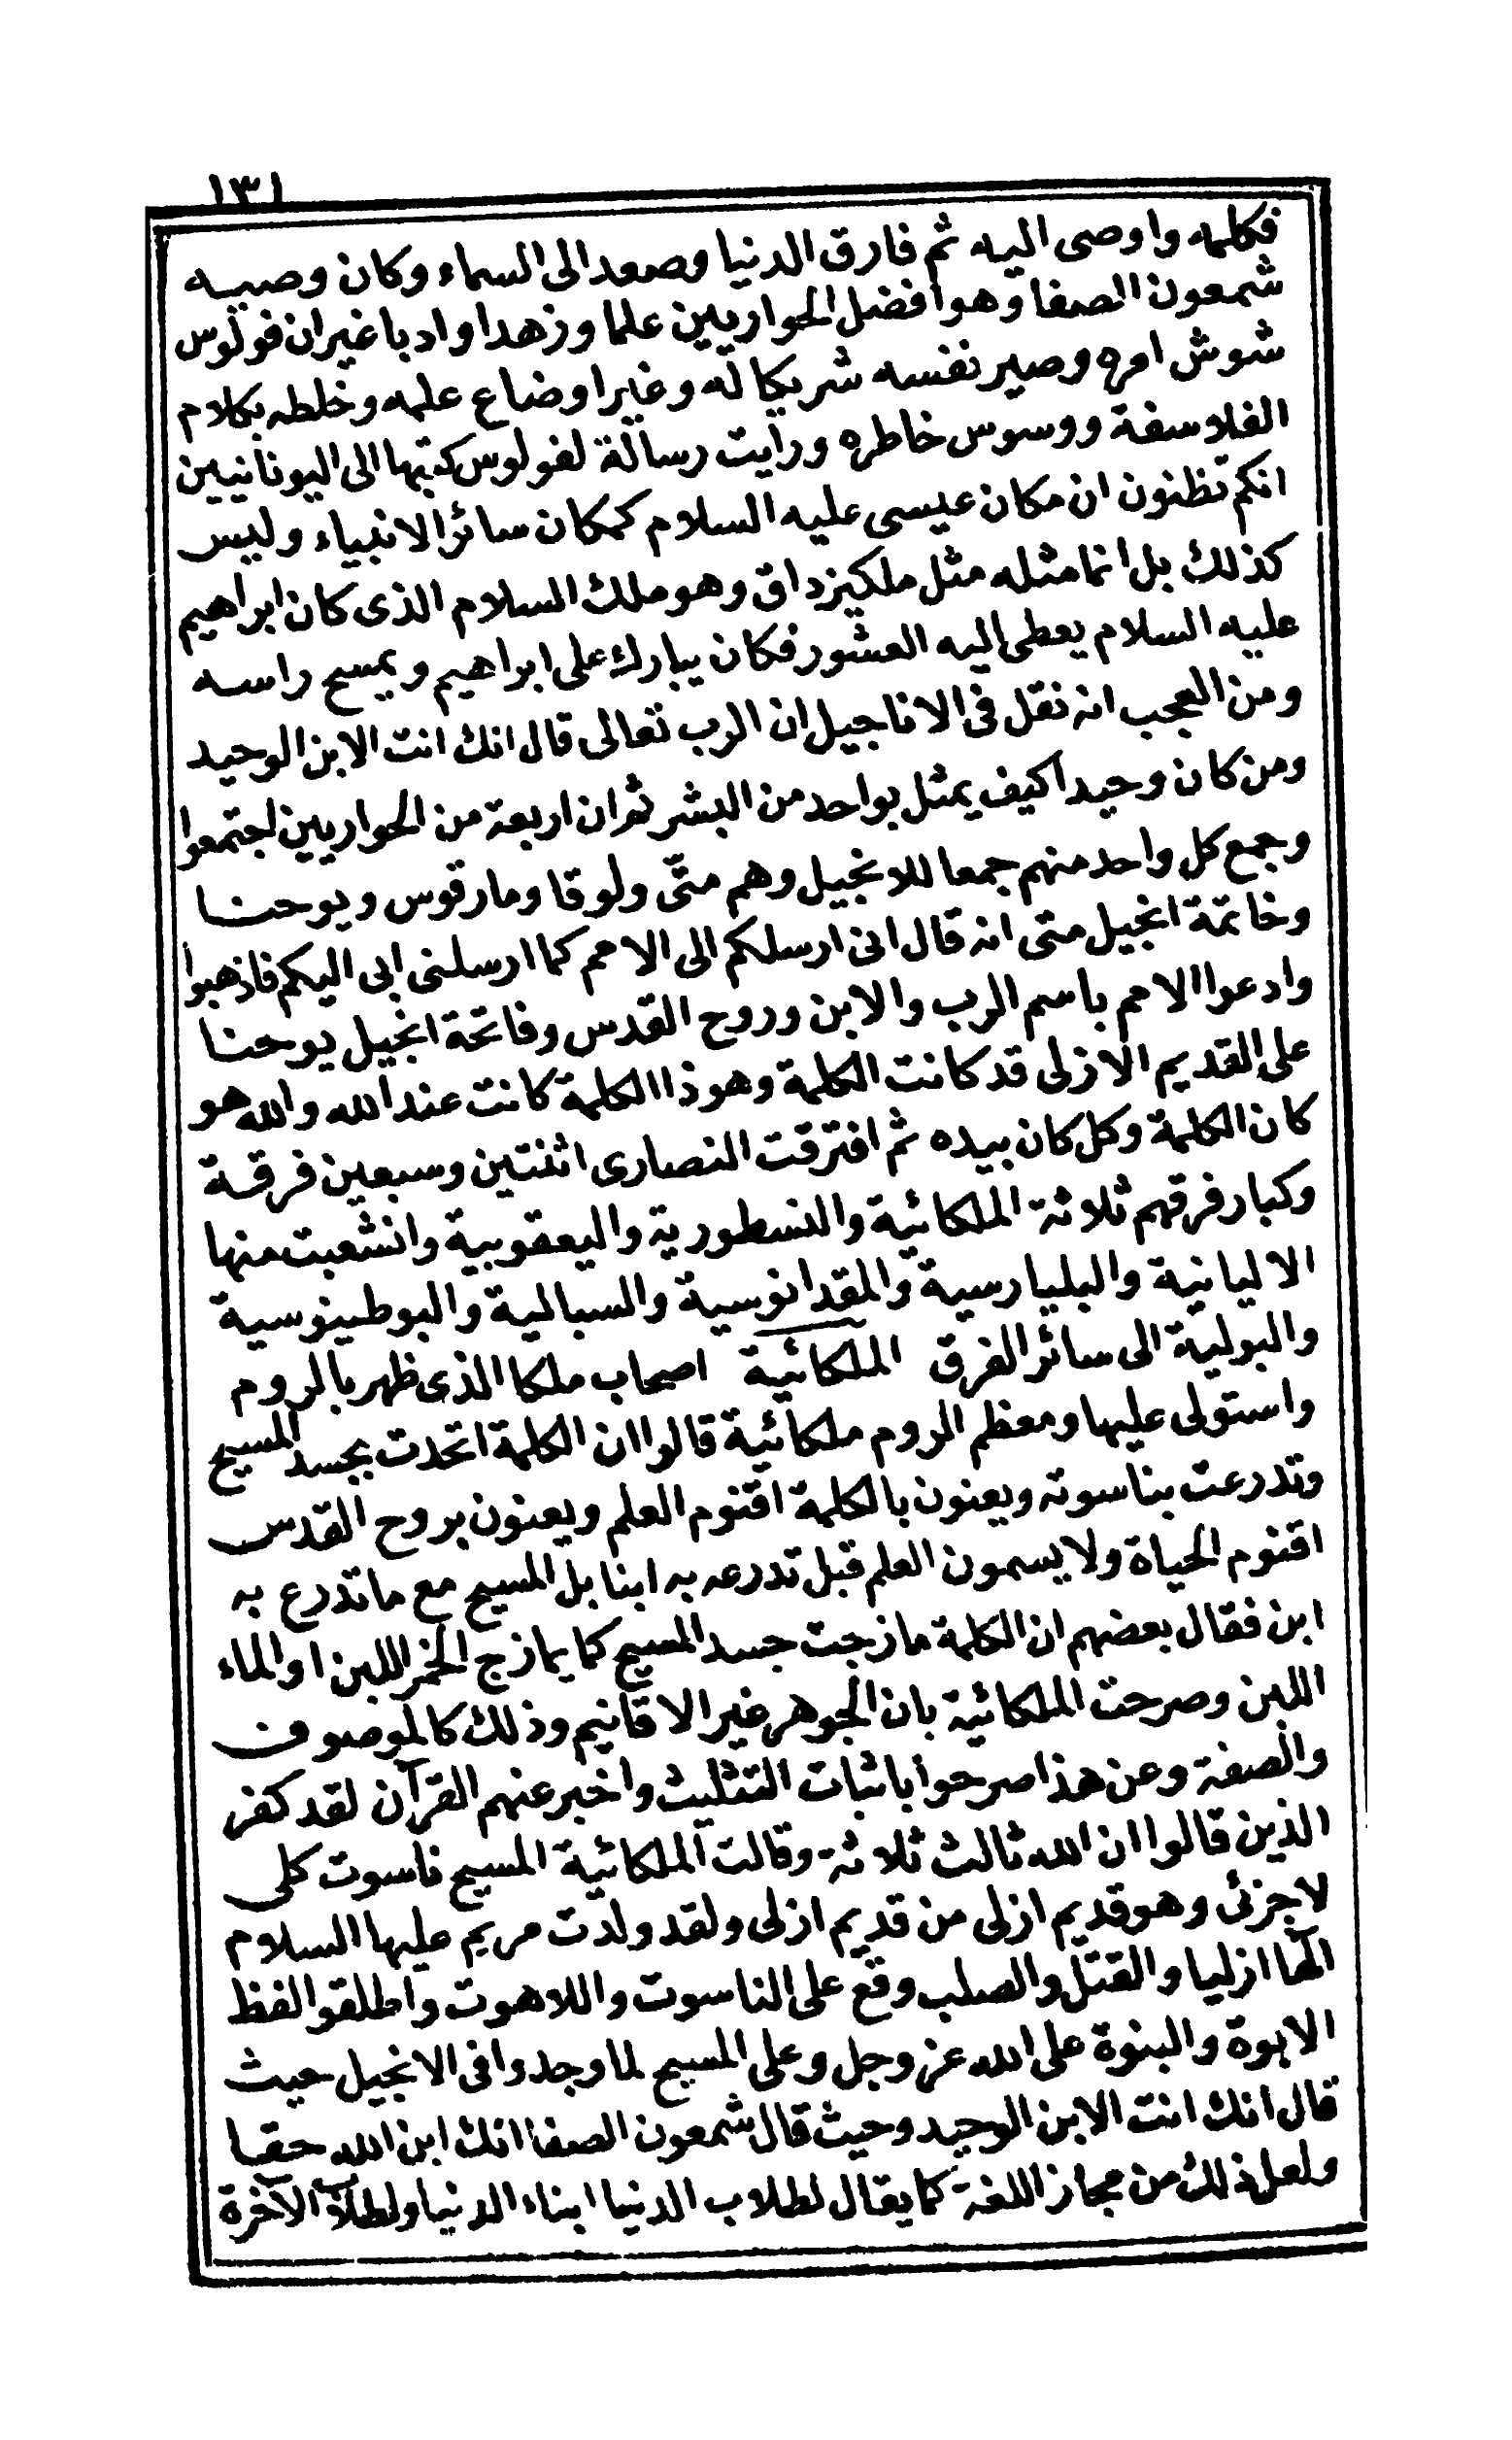 ١٣١
فكلمه واوصى اليه ثم فارق الدنيا وصعد الى السماء وكان وصيه
شمعون الصفا وهو افضل الحواريين علما وزهدا وادبا غير ان فولوس
شوش امره وصير نفسه شريكا له وغير اوضاع علمه وخلطه بكلام
الفلاسفة ووسوس خاطره ورأيت رسالة لفولوس كتبها الى اليونانيين
انكم تظنون ان مكان عيسى عليه السلام كمكان سائر الانبياء وليس
كذلك بل انما مثله مثل ملكيزداق وهو ملك السلام الذى كان ابراهيم
عليه السلام يعطى اليه العشور فكان يبارك على ابراهيم ويمسح راسه
ومن العجب انه نقل فى الاناجيل ان الرب تعالى قال انك انت الابن الوحيد
ومن كان وحيدا كيف يمثل بواحد من البشر ثم ان اربعة من الحواريين اجتمعوا
وجمع كل واحد منهم جمعا للانجيل وهم متّى ولوقا ومارقوس ويوحنا
وخاتمة انجيل متى انه قال انى ارسلكم الى الامم كما ارسلنى ابى اليكم فاذهبوا
وادعوا الامم باسم الرب والابن وروح القدس وفاتحة انجيل يوحنا
على القديم الازلى قد كانت الكلمة وهوذا الكلمة كانت عند الله والله هو
كان الكلمة وكل كان بيده ثم افترقت النصارى اثنتين وسبعين فرقة
وكبار فرقهم ثلاثة الملكائية والنسطورية واليعقوبية وانشعبت منها
الاليانية والبليارسية والمقدانوسية والسبالية والبوطينوسية
والبولية الى سائر الفرق الملكائية اصحاب ملكا الذى ظهر بالروم
واستولى عليها ومعظم الروم ملكائية قالوا ان الكلمة اتحدت بجسد المسيح
وتدرعت بناسوته ويعنون بالكلمة اقنوم العلم ويعنون بروح القدس
اقنوم الحياة ولا يسمون العلم قبل تدرعه به ابنا بل المسيح مع ما تدرع به
ابن فقال بعضهم ان الكلمة مازجت جسد المسيح كما يمازج الخمر اللبن او الماء
اللبن وصرحت الملكائية بان الجوهر غير الاقانيم وذلك كالموصوف
والصفة وعن هذا صرحوا باثبات التثليث واخبر عنهم القرآن لقد كفر
الذين قالوا ان الله ثالث ثلاثة وقالت الملكائية المسيح ناسوت كلى
لا جزئى وهو قديم ازلى من قديم ازلى ولقد ولدت مريم عليها السلام
الها ازليا والقتل والصلب وقع على الناسوت واللاهوت واطلقوا لفظ
الابوة والبنوة على الله عز وجل وعلى المسيح لما وجدوا فى الانجيل حيث
قال انك انت الابن الوحيد وحيث قال شمعون الصفا انك ابن الله حقا
ولعل ذلك من مجاز اللغة كما يقال لطلاب الدنيا ابناء الدنيا ولطلاب الآخرة